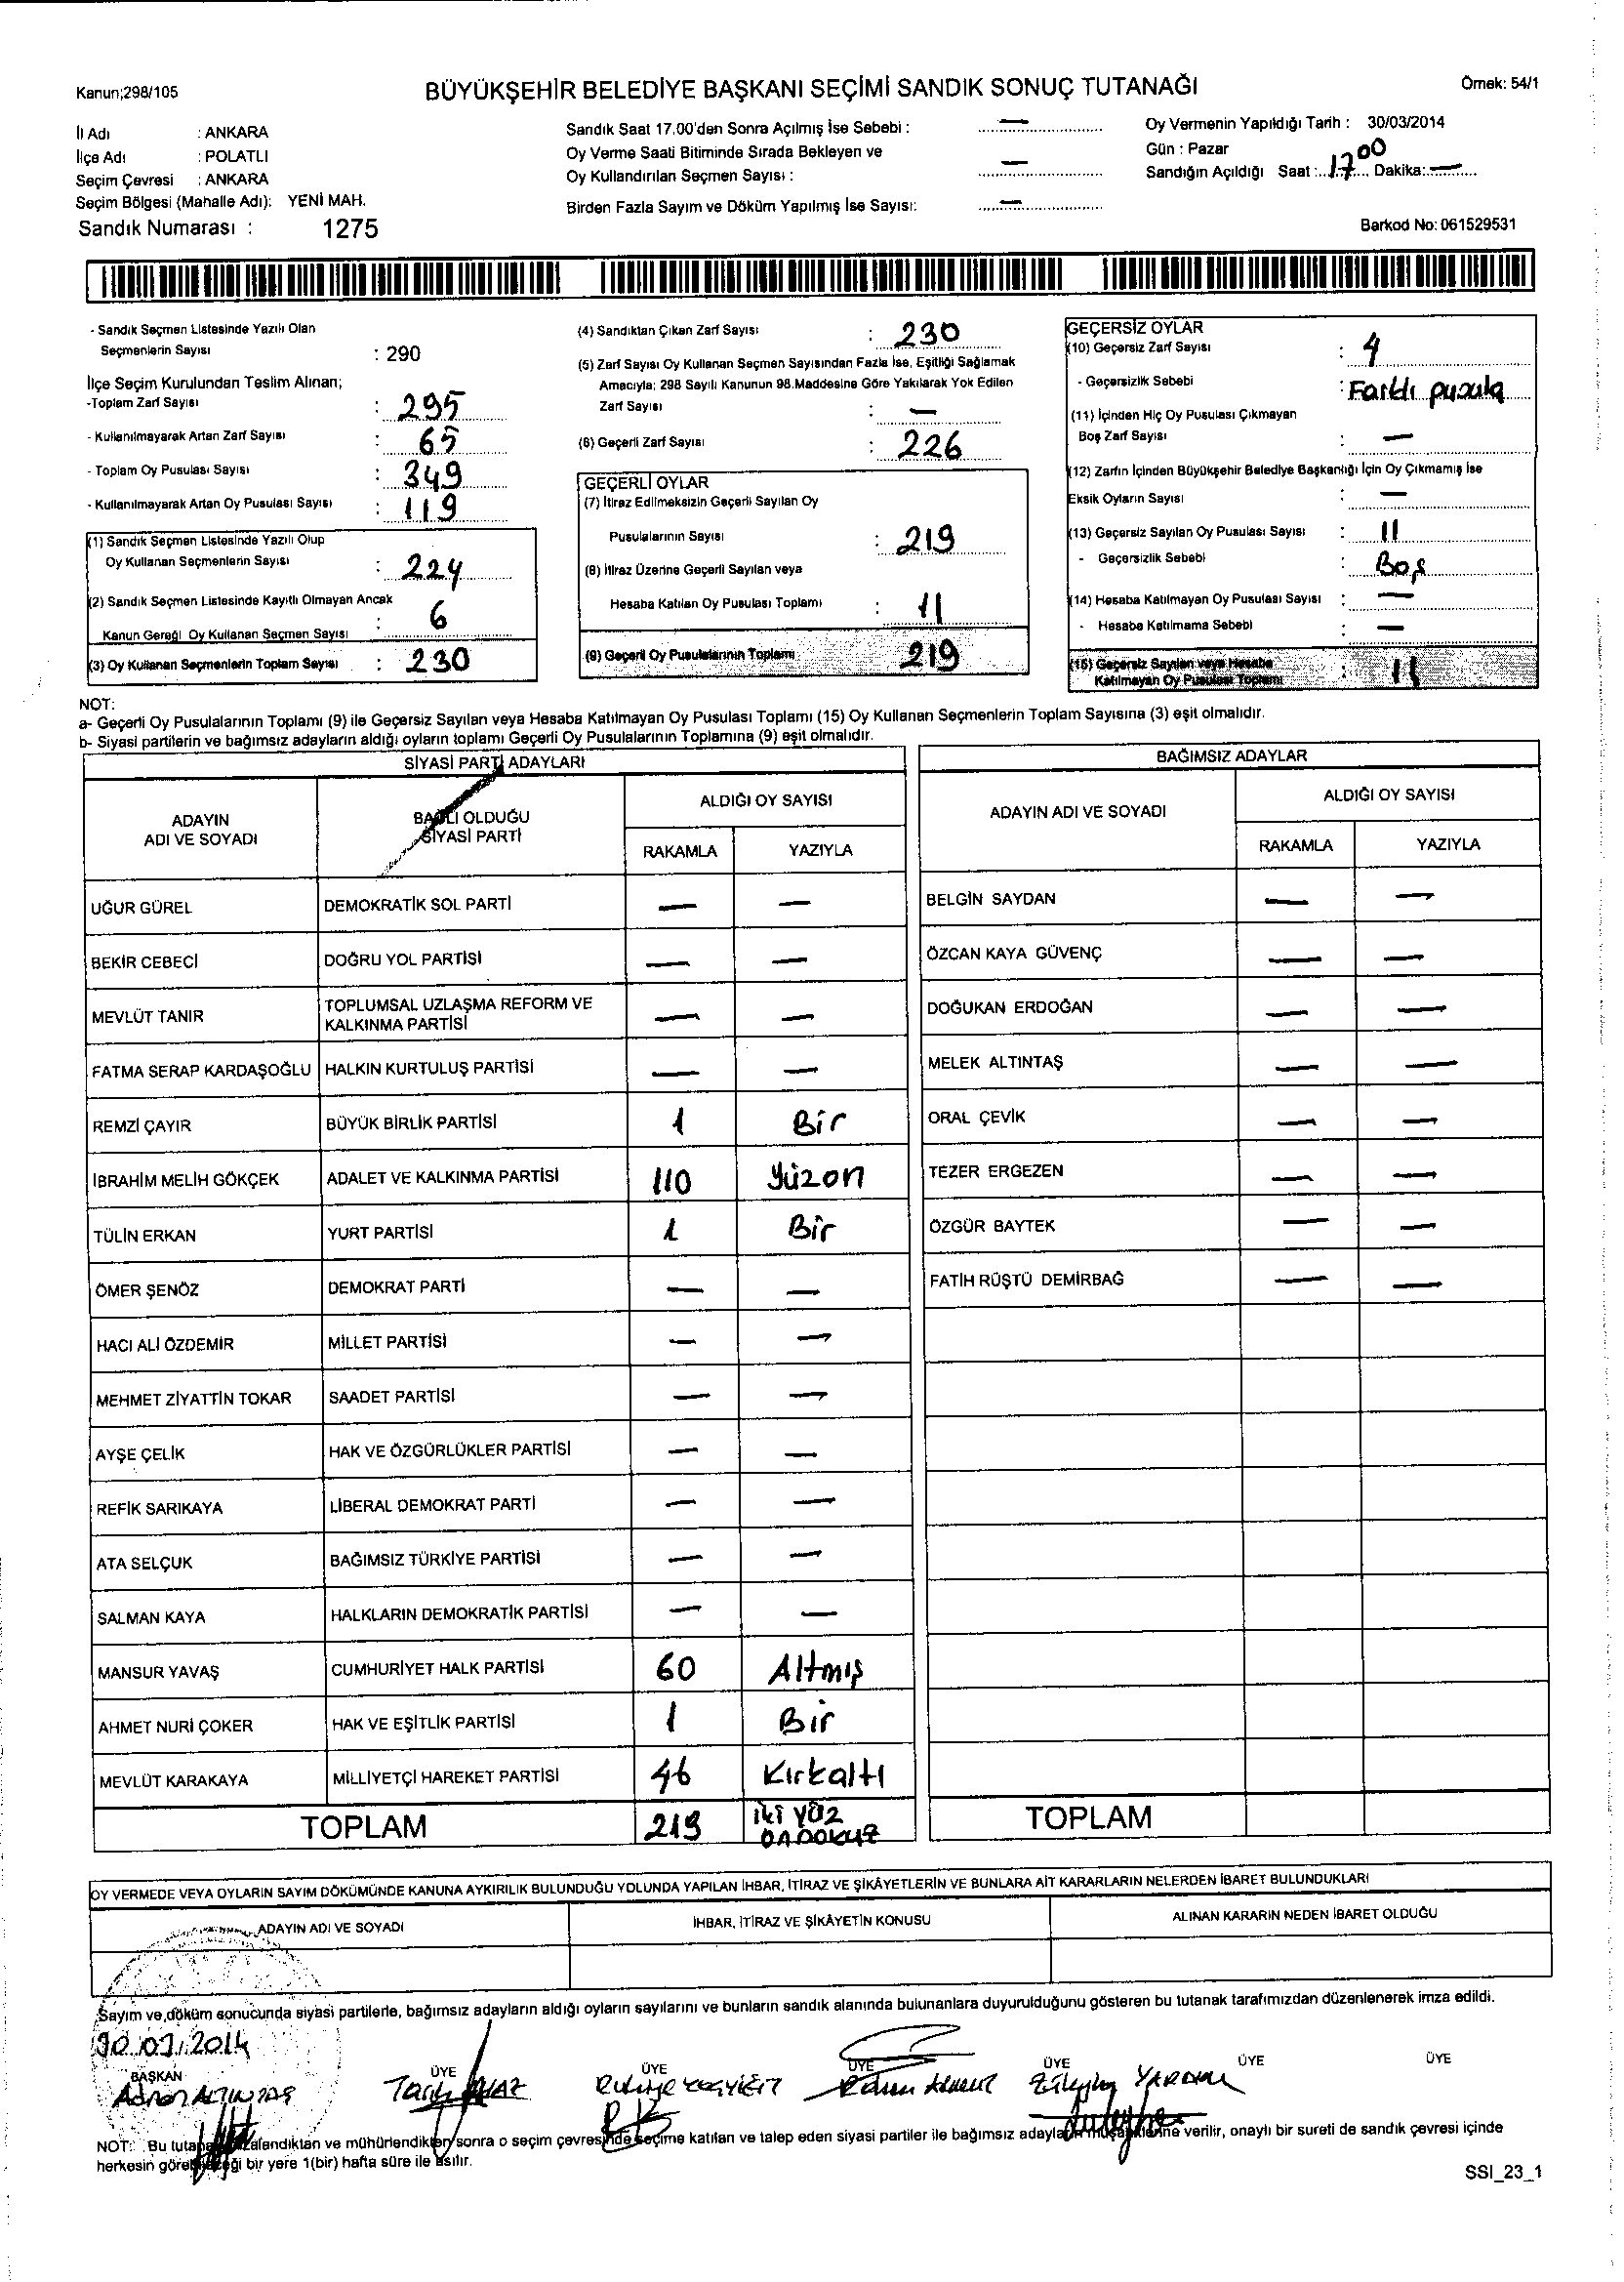 Kanun;298/105
BÜYÜKŞEHİR BELEDİYE BAŞKANI SEÇİMİ SANDIK SONUÇ TUTANAĞI
Örnek: 54/1
İl Adı : ANKARA
İlçe Adı : POLATLI
Seçim Çevresi : ANKARA
Seçim Bölgesi (Mahalle Adı): YENİ MAH.
Sandık Numarası : 1275
Sandık Saat 17.00'den Sonra Açılmış İse Sebebi : —
Oy Verme Saati Bitiminde Sırada Bekleyen ve
Oy Kullandırılan Seçmen Sayısı : —
Birden Fazla Sayım ve Döküm Yapılmış İse Sayısı: —
Oy Vermenin Yapıldığı Tarih : 30/03/2014
Gün : Pazar
Sandığın Açıldığı Saat : 1700 Dakika: —
Barkod No: 061529531
- Sandık Seçmen Listesinde Yazılı Olan
Seçmenlerin Sayısı : 290
İlçe Seçim Kurulundan Teslim Alınan;
-Toplam Zarf Sayısı : 295
- Kullanılmayarak Artan Zarf Sayısı : 65
- Toplam Oy Pusulası Sayısı : 349
- Kullanılmayarak Artan Oy Pusulası Sayısı : 119
(1) Sandık Seçmen Listesinde Yazılı Olup
Oy Kullanan Seçmenlerin Sayısı : 224
(2) Sandık Seçmen Listesinde Kayıtlı Olmayan Ancak
Kanun Gereği Oy Kullanan Seçmen Sayısı : 6
(3) Oy Kullanan Seçmenlerin Toplam Sayısı : 230
(4) Sandıktan Çıkan Zarf Sayısı : 230
(5) Zarf Sayısı Oy Kullanan Seçmen Sayısından Fazla İse, Eşitliği Sağlamak
Amacıyla; 298 Sayılı Kanunun 98.Maddesine Göre Yakılarak Yok Edilen
Zarf Sayısı : —
(6) Geçerli Zarf Sayısı : 226
GEÇERLİ OYLAR
(7) İtiraz Edilmeksizin Geçerli Sayılan Oy
Pusulalarının Sayısı : 219
(8) İtiraz Üzerine Geçerli Sayılan veya
Hesaba Katılan Oy Pusulası Toplamı : 11
(9) Geçerli Oy Pusulalarının Toplamı 219
GEÇERSİZ OYLAR
(10) Geçersiz Zarf Sayısı : 4
- Geçersizlik Sebebi : Farklı pusula
(11) İçinden Hiç Oy Pusulası Çıkmayan
Boş Zarf Sayısı : —
(12) Zarfın İçinden Büyükşehir Belediye Başkanlığı İçin Oy Çıkmamış İse
Eksik Oyların Sayısı : —
(13) Geçersiz Sayılan Oy Pusulası Sayısı : 11
- Geçersizlik Sebebi : Boş
(14) Hesaba Katılmayan Oy Pusulası Sayısı : —
- Hesaba Katılmama Sebebi : —
(15) Geçersiz Sayılan veya Hesaba
Katılmayan Oy Pusulası Toplamı : 11
NOT:
a- Geçerli Oy Pusulalarının Toplamı (9) ile Geçersiz Sayılan veya Hesaba Katılmayan Oy Pusulası Toplamı (15) Oy Kullanan Seçmenlerin Toplam Sayısına (3) eşit olmalıdır.
b- Siyasi partilerin ve bağımsız adayların aldığı oyların toplamı Geçerli Oy Pusulalarının Toplamına (9) eşit olmalıdır.
SİYASİ PARTİ ADAYLARI
ADAYIN ADI VE SOYADI BAĞLI OLDUĞU SİYASİ PARTİ ALDIĞI OY SAYISI
RAKAMLA YAZIYLA
UĞUR GÜREL DEMOKRATİK SOL PARTİ — —
BEKİR CEBECİ DOĞRU YOL PARTİSİ — —
MEVLÜT TANIR TOPLUMSAL UZLAŞMA REFORM VE KALKINMA PARTİSİ — —
FATMA SERAP KARDAŞOĞLU HALKIN KURTULUŞ PARTİSİ — —
REMZİ ÇAYIR BÜYÜK BİRLİK PARTİSİ 1 Bir
İBRAHİM MELİH GÖKÇEK ADALET VE KALKINMA PARTİSİ 110 Yüzon
TÜLİN ERKAN YURT PARTİSİ 1 Bir
ÖMER ŞENÖZ DEMOKRAT PARTİ — —
HACI ALİ ÖZDEMİR MİLLET PARTİSİ — —
MEHMET ZİYATTİN TOKAR SAADET PARTİSİ — —
AYŞE ÇELİK HAK VE ÖZGÜRLÜKLER PARTİSİ — —
REFİK SARIKAYA LİBERAL DEMOKRAT PARTİ — —
ATA SELÇUK BAĞIMSIZ TÜRKİYE PARTİSİ — —
SALMAN KAYA HALKLARIN DEMOKRATİK PARTİSİ — —
MANSUR YAVAŞ CUMHURİYET HALK PARTİSİ 60 Altmış
AHMET NURİ ÇOKER HAK VE EŞİTLİK PARTİSİ 1 Bir
MEVLÜT KARAKAYA MİLLİYETÇİ HAREKET PARTİSİ 46 Kırkaltı
TOPLAM 219 iki YÜZ ONDOKUZ
BAĞIMSIZ ADAYLAR
ADAYIN ADI VE SOYADI ALDIĞI OY SAYISI
RAKAMLA YAZIYLA
BELGİN SAYDAN — —
ÖZCAN KAYA GÜVENÇ — —
DOĞUKAN ERDOĞAN — —
MELEK ALTINTAŞ — —
ORAL ÇEVİK — —
TEZER ERGEZEN — —
ÖZGÜR BAYTEK — —
FATİH RÜŞTÜ DEMİRBAĞ — —
TOPLAM
OY VERMEDE VEYA OYLARIN SAYIM DÖKÜMÜNDE KANUNA AYKIRILIK BULUNDUĞU YOLUNDA YAPILAN İHBAR, İTİRAZ VE ŞİKÂYETLERİN VE BUNLARA AİT KARARLARIN NELERDEN İBARET BULUNDUKLARI
ADAYIN ADI VE SOYADI İHBAR, İTİRAZ VE ŞİKÂYETİN KONUSU ALINAN KARARIN NEDEN İBARET OLDUĞU
Sayım ve döküm sonucunda siyasi partilerle, bağımsız adayların aldığı oyların sayılarını ve bunların sandık alanında bulunanlara duyurulduğunu gösteren bu tutanak tarafımızdan düzenlenerek imza edildi.
30.03.2014
BAŞKAN ÜYE ÜYE ÜYE ÜYE ÜYE ÜYE
Adnan ALTINTAŞ
NOT: Bu tutanak imzalandıktan ve mühürlendikten sonra o seçim çevresinde seçime katılan ve talep eden siyasi partiler ile bağımsız adayların müşahitlerine verilir, onaylı bir sureti de sandık çevresi içinde
herkesin görebileceği bir yere 1(bir) hafta süre ile asılır.
SSI_23_1